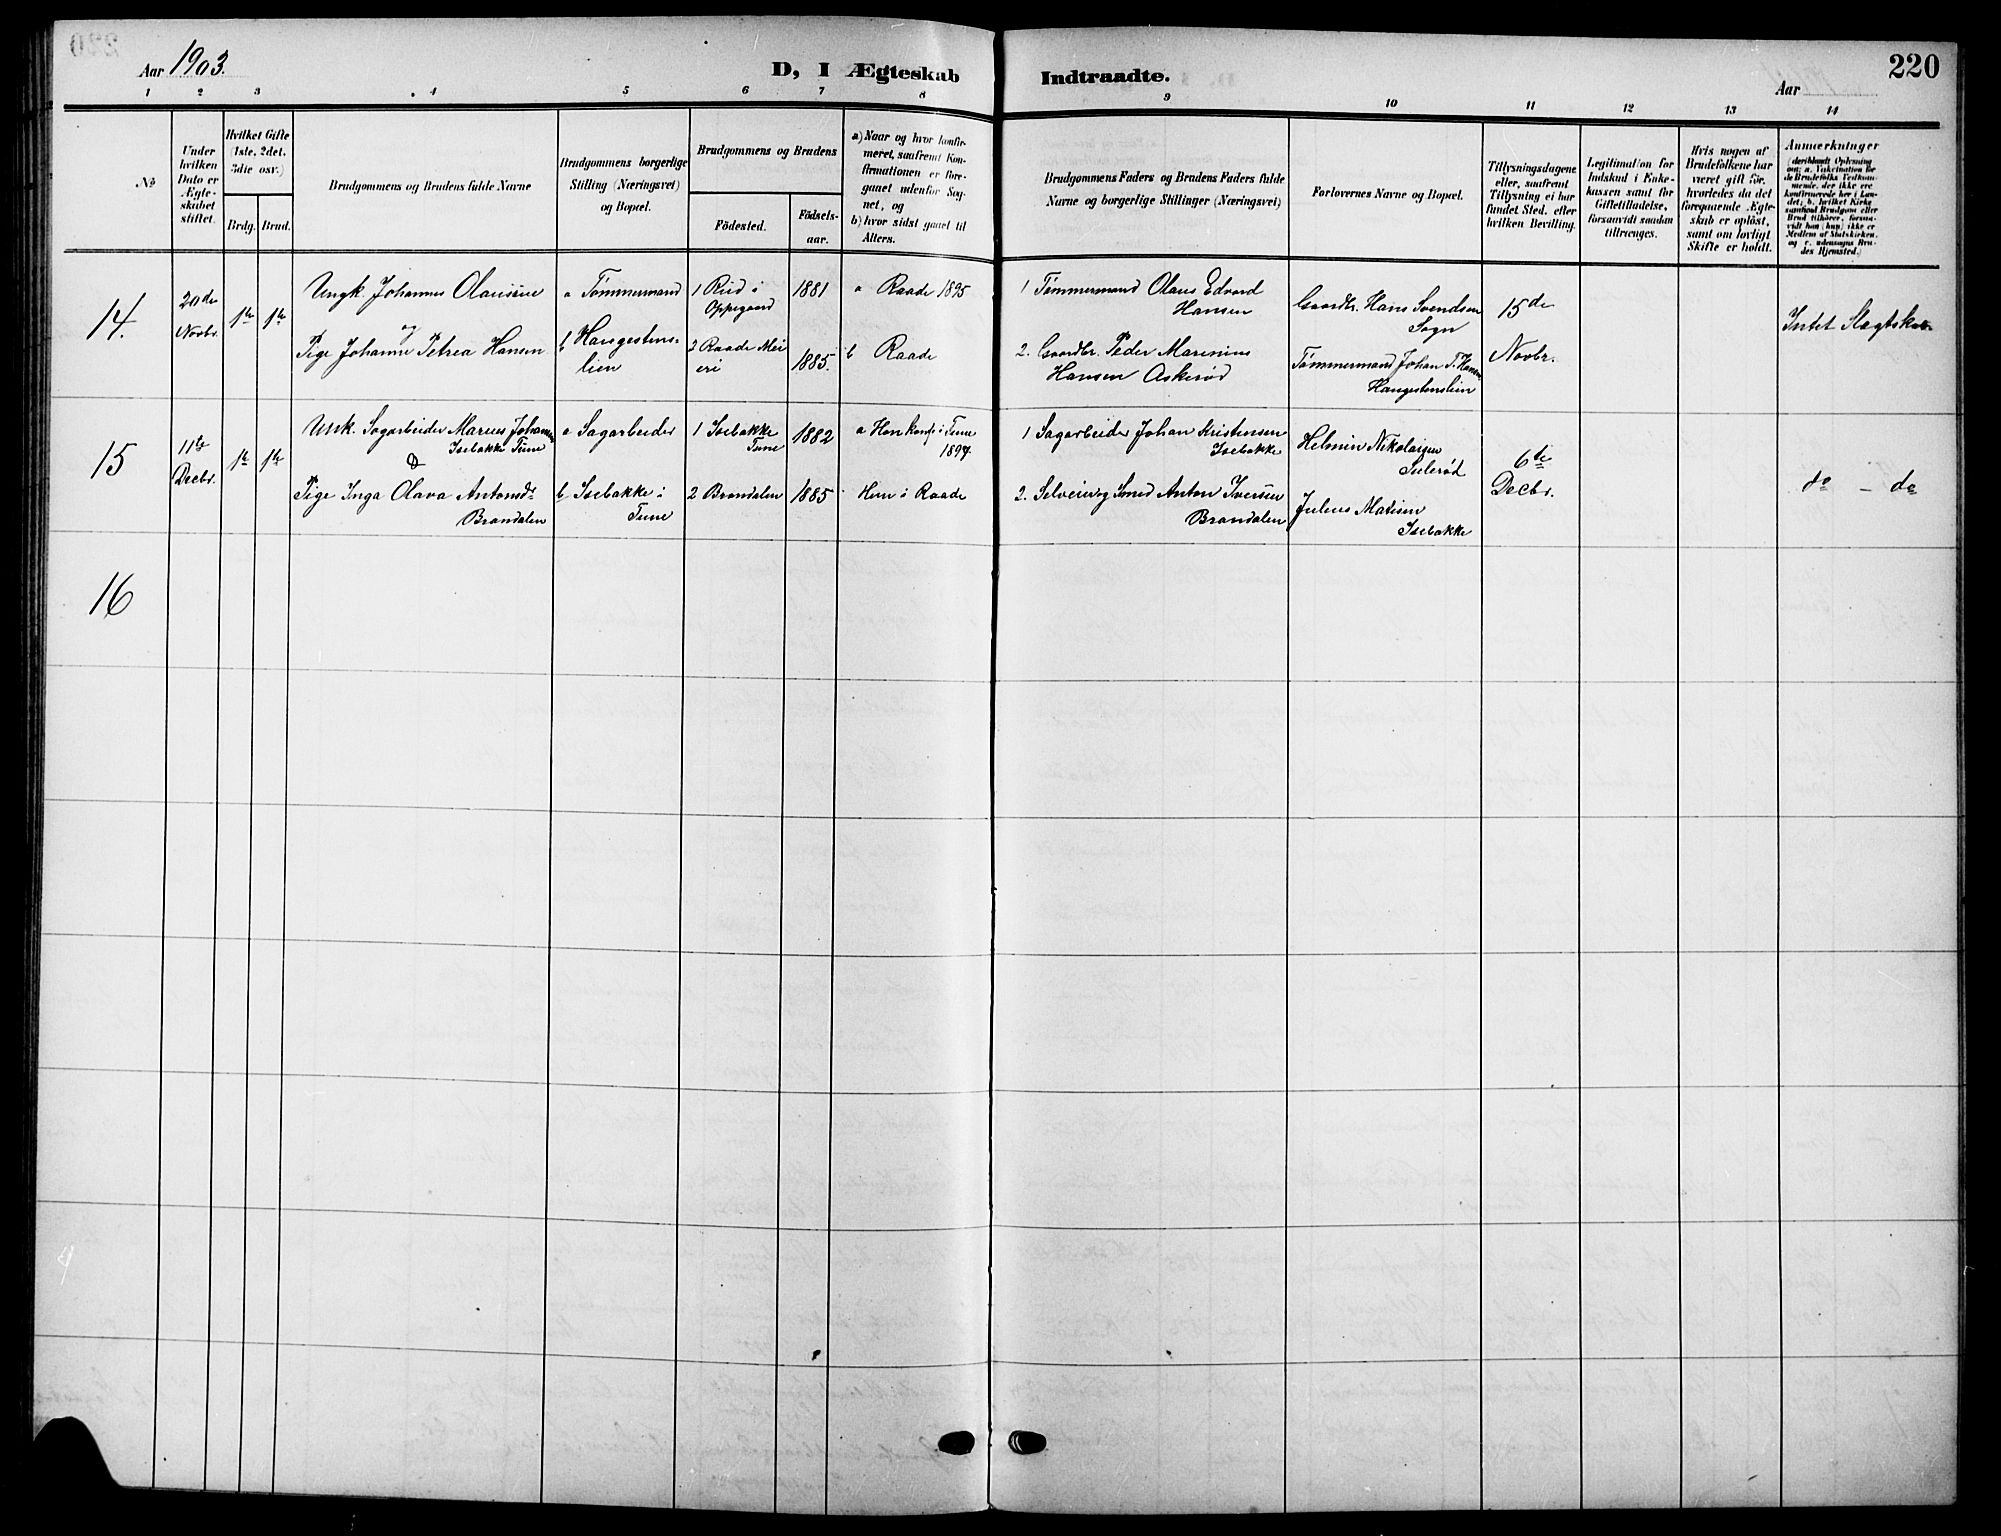 220
Aar 1903.
D, I Ægteskab
Indtraadte.
Aar
1 2 3 4 5 6 7 8 9 10 11 12 13 14
№
Under
hvilken
Dato er
Ægte-
skabet
stiftet.
Hvilket Gifte
(1ste, 2det,
3die osv.)
Brdg. Brud.
Brudgommens og Brudens fulde Navne
Brudgommens borgerlige
Stilling (Næringsvei)
og Bopæl.
Brudgommens og Brudens
Födested.
Födsels-
aar.
a) Naar og hvor konfir-
meret, saafremt Kon-
firmationen er fore-
gaaet udenfor Sog-
net, og
b) hvor sidst gaaet til
Alters.
Brudgommens Faders og Brudens Faders fulde
Navne og borgerlige Stillinger (Næringsvei)
Forlovernes Navne og Bopæl.
Tillysningsdagene
eller, saafremt
Tillysning ei har
fundet Sted, efter
hvilken Bevilling.
Legitimation for
Indskud i Enke-
kassen samt for
Giftetilladelse,
forsaavidt saadan
tiltrænges.
Hvis nogen af
Brudefolkene har
været gift för,
hvorledes da det
foregaaende Ægte-
skab er oplöst,
samt om lovligt
Skifte er holdt.
Anmærkninger
(deriblandt Oplysning
om: a. Vakcination for
de Brudefolks Vedkom-
mende, der ikke ere
konfirmerede her i Lan-
det; b. hvilket Kirke-
samfund Brudgom eller
Brud tilhörer, forsaa-
vidt han (hun) ikke er
Medlem af Statskirken,
og c. udensogns Bru-
des Hjemsted.)
14.
20de
Novbr.
1ste 1ste
Ungk. Johannes Olaussen
og
Pige Johanne Petrea Hansen
a Tømmermand
b Hangestens-
lien
1 Rud i
Oppegaard
2 Raade Mei
eri
1881
1885.
a Raade 1895
b Raade
1 Tømmermand Olaus Edvard
Hansen
2. Gaardbr. Peder Marinius
Hansen Askerød
Gaardbr. Hans Svendsen
Sogn
Tømmermand Johan T. Hansen
Hangestenslien
15de
Novbr.
Intet Slagtskab
15
11te
Decbr.
1ste 1ste
Unk. Sagarbeider Marius Johansen
Isebakke Tune
&
Pige Inga Olava Antonsdr
Brandalen
a Sagarbeider
b Isebakke i
Tune
1 Isebakke
Tune
2 Brandalen
1882
1885
a Han konf. i Tune
1897
Hun i Raade
1 Sagarbeider Johan Kristensen
Isebakke
2. Selveier og Smed Anton Iversen
Brandalen
Helmin Nikolaisen
Sulerød
Julius Matisen
Isebakke
6te
Decbr.
do – do
16